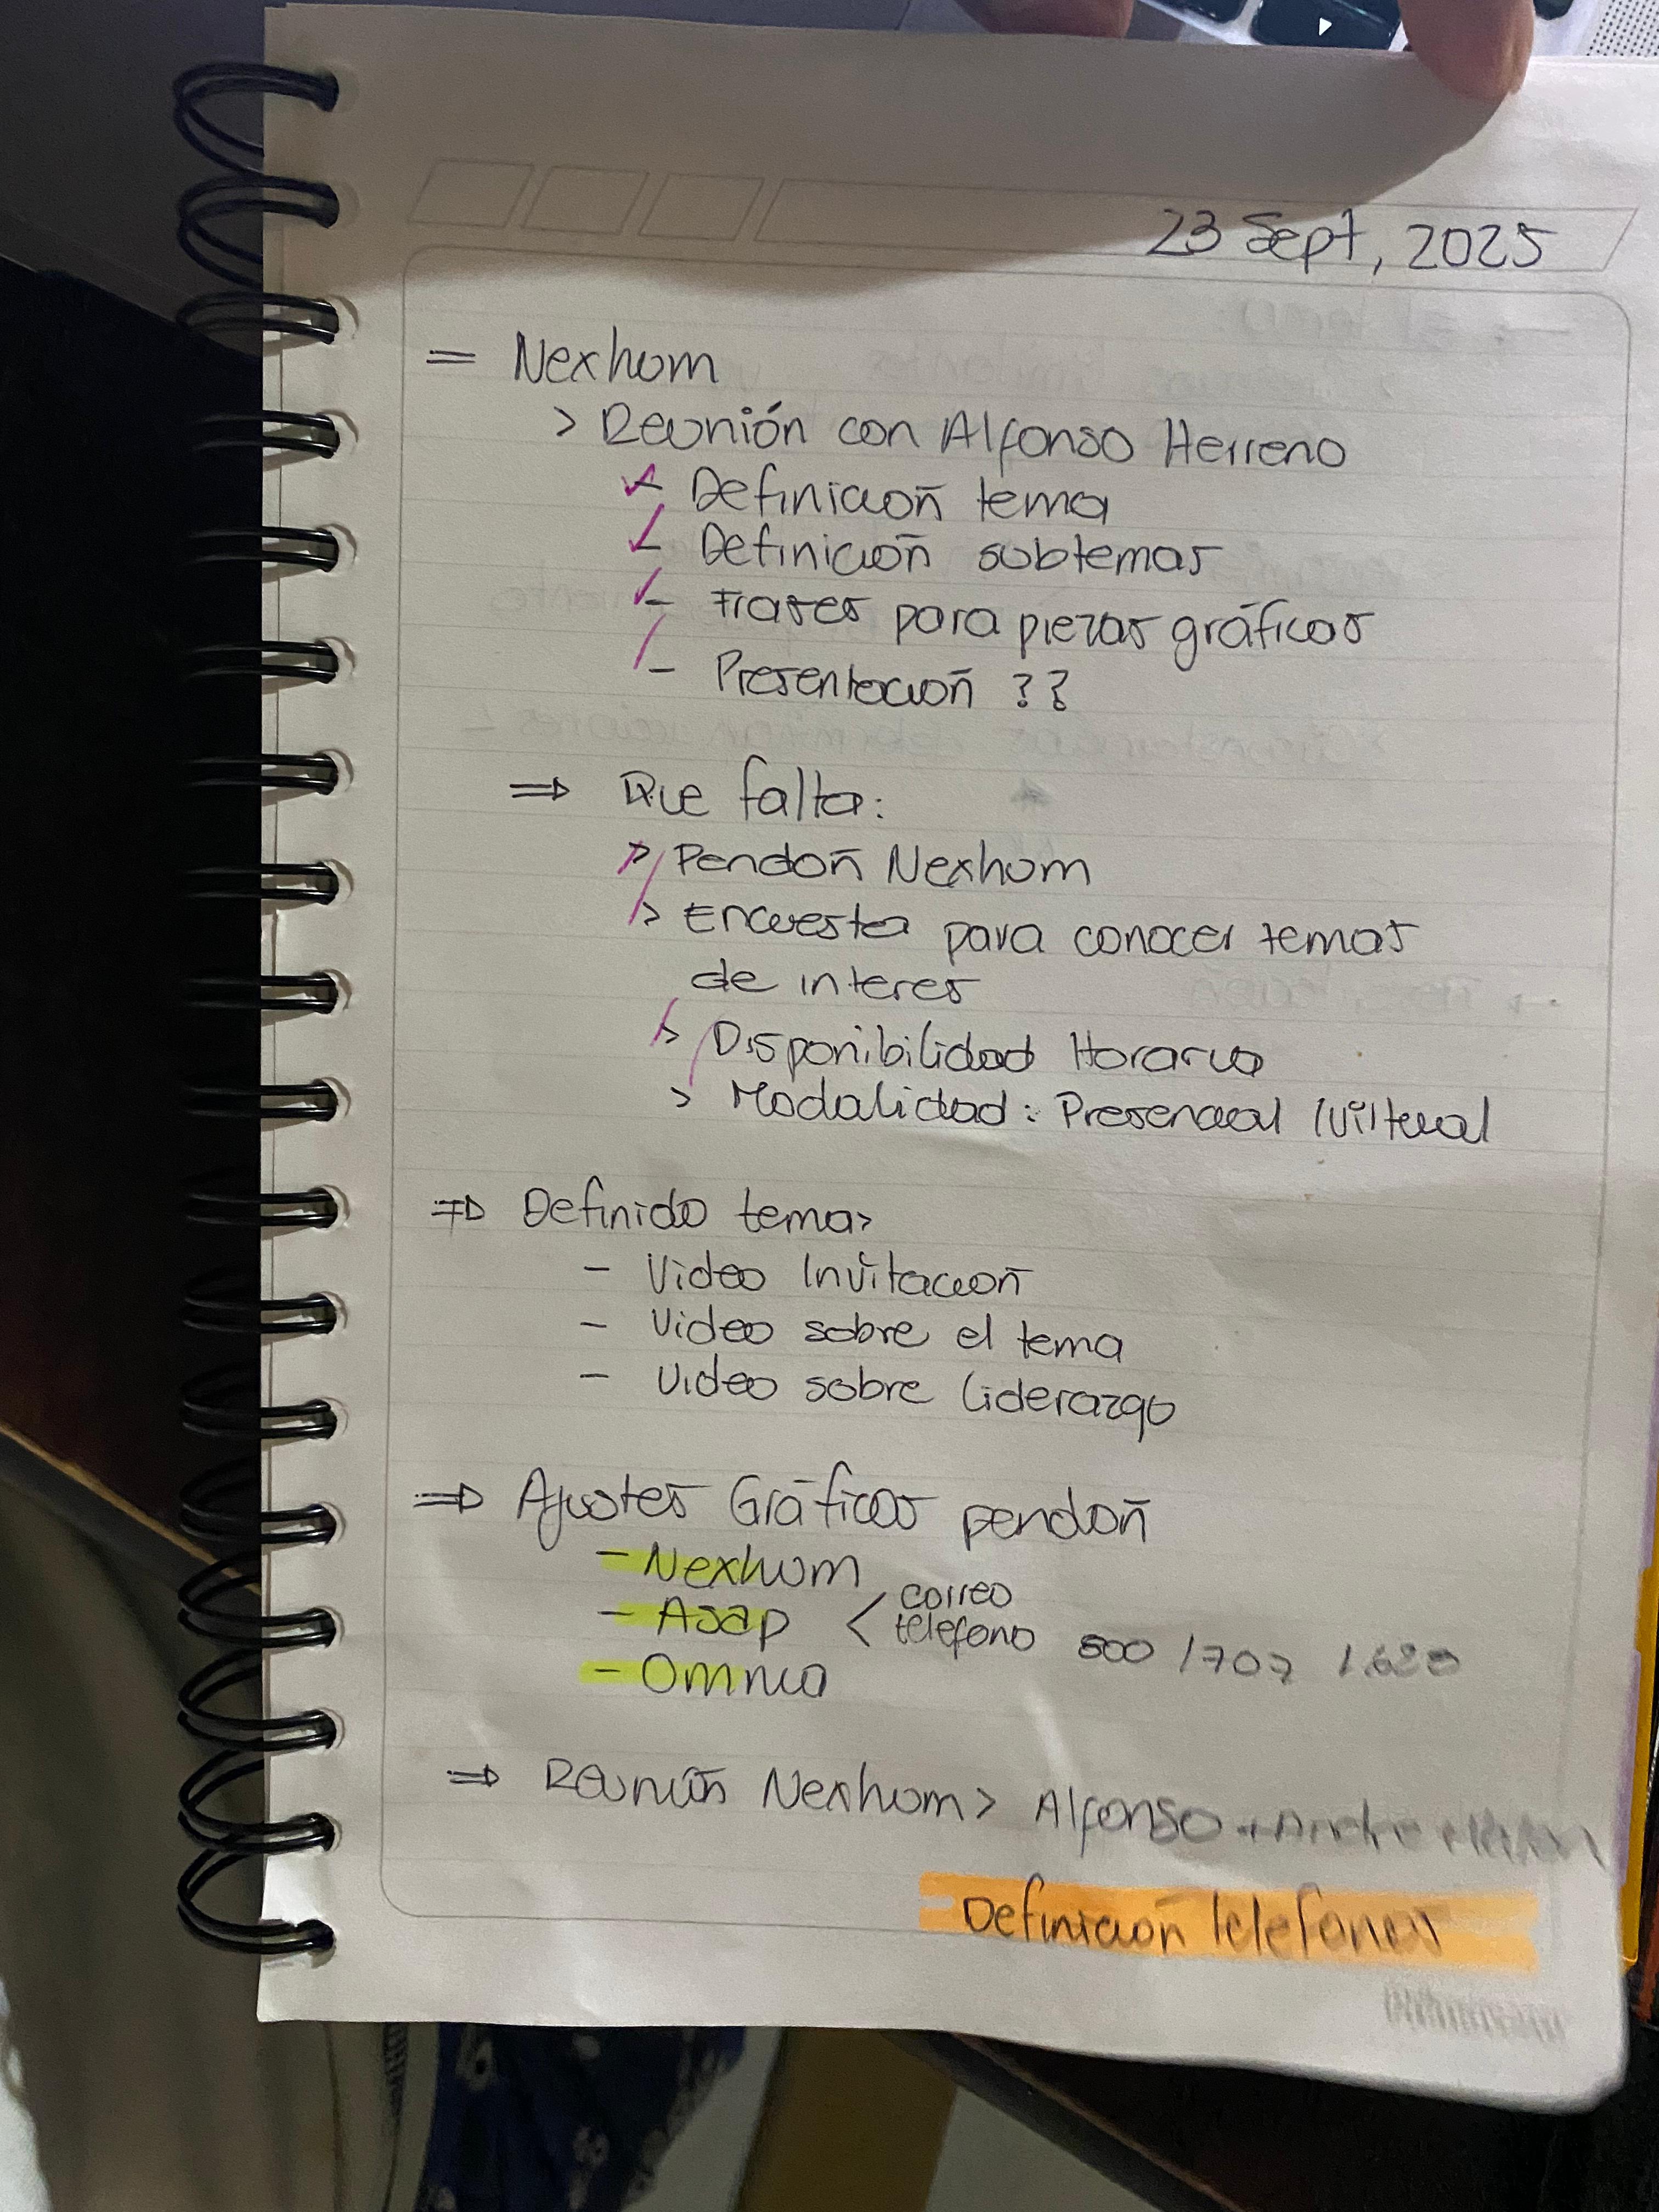 23 Sept, 2025
= Nexhum
> Reunión con Alfonso Herreno
- Definición tema
- Definición subtemas
- Frases para piezas gráficas
- Presentación ??
⇒ Que falta:
> Pendón Nexhum
> Encuesta para conocer temas
de interes
> Disponibilidad Horaria
> Modalidad: Presencial / Virtual
⇒ Definido tema>
- Video Invitación
- Video sobre el tema
- Video sobre liderazgo
⇒ Ajustes Gráficos pendón
- Nexhum
- Asap < correo
telefono 500 / 707
- Omnia
⇒ Reunión Nexhum > Alfonso + Andre
Definición telefonos